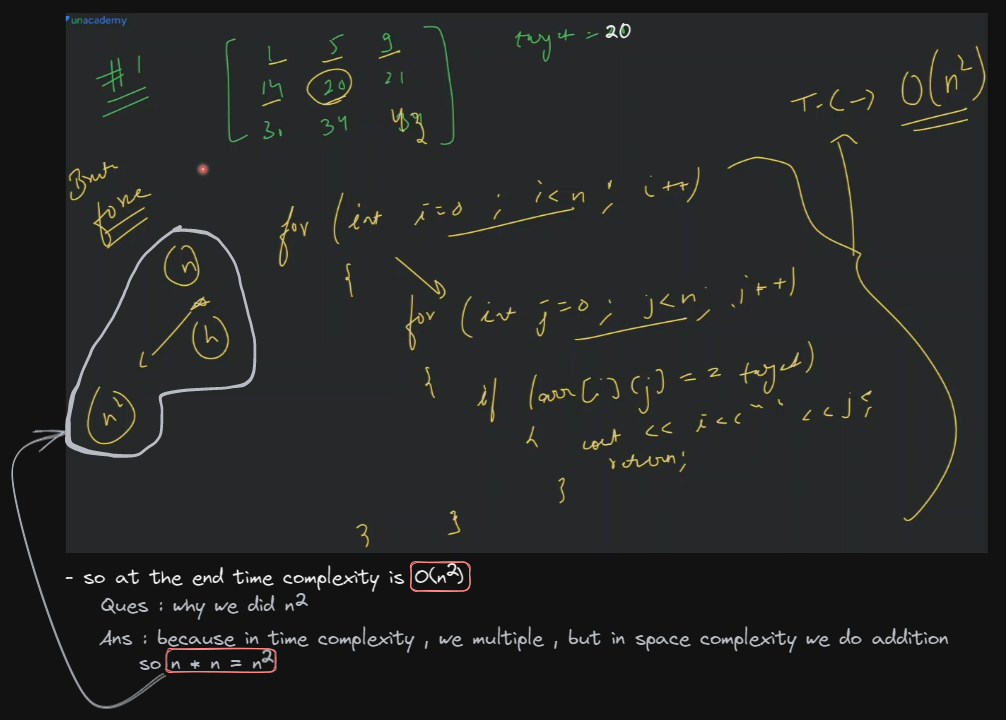 unacademy
#1
1 5 9
14 20 21
30 34 43
target = 20
T.C → O(n²)
Brute force
n
n
n²
for (int i=0 ; i<n ; i++)
{
for (int j=0 ; j<n; j++)
{ if (arr[i][j] == target)
{ cout << i<<" " <<j;
return;
}
} }
- so at the end time complexity is O(n²)
Ques : why we did n²
Ans : because in time complexity , we multiple , but in space complexity we do addition
so n * n = n²